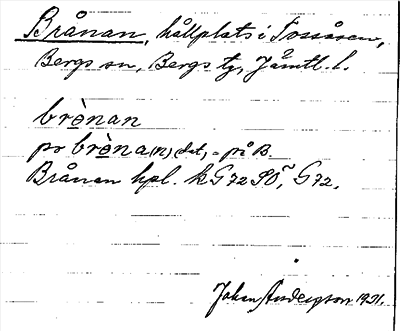 Brånan, hållplats i Tossåsen,
Bergs sn, Bergs tg, Jämtl. l.
brènan
po brèna(n) (dat) = på B.
Brånan hpl. k G72 SÖ, G72.
Johan Anderson 1921.